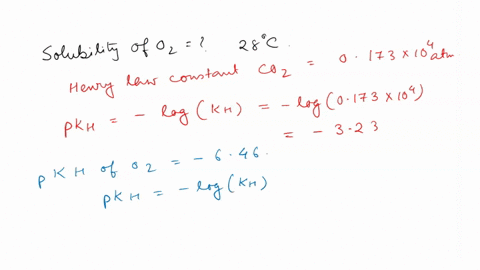 Solubility of O2 = ? 28°C
Henry law constant CO2 = 0.173 × 10^4 atm
pKH = - log (KH) = - log (0.173 × 10^4)
= - 3.23
pKH of O2 = - 6.46.
pKH = - log (KH)